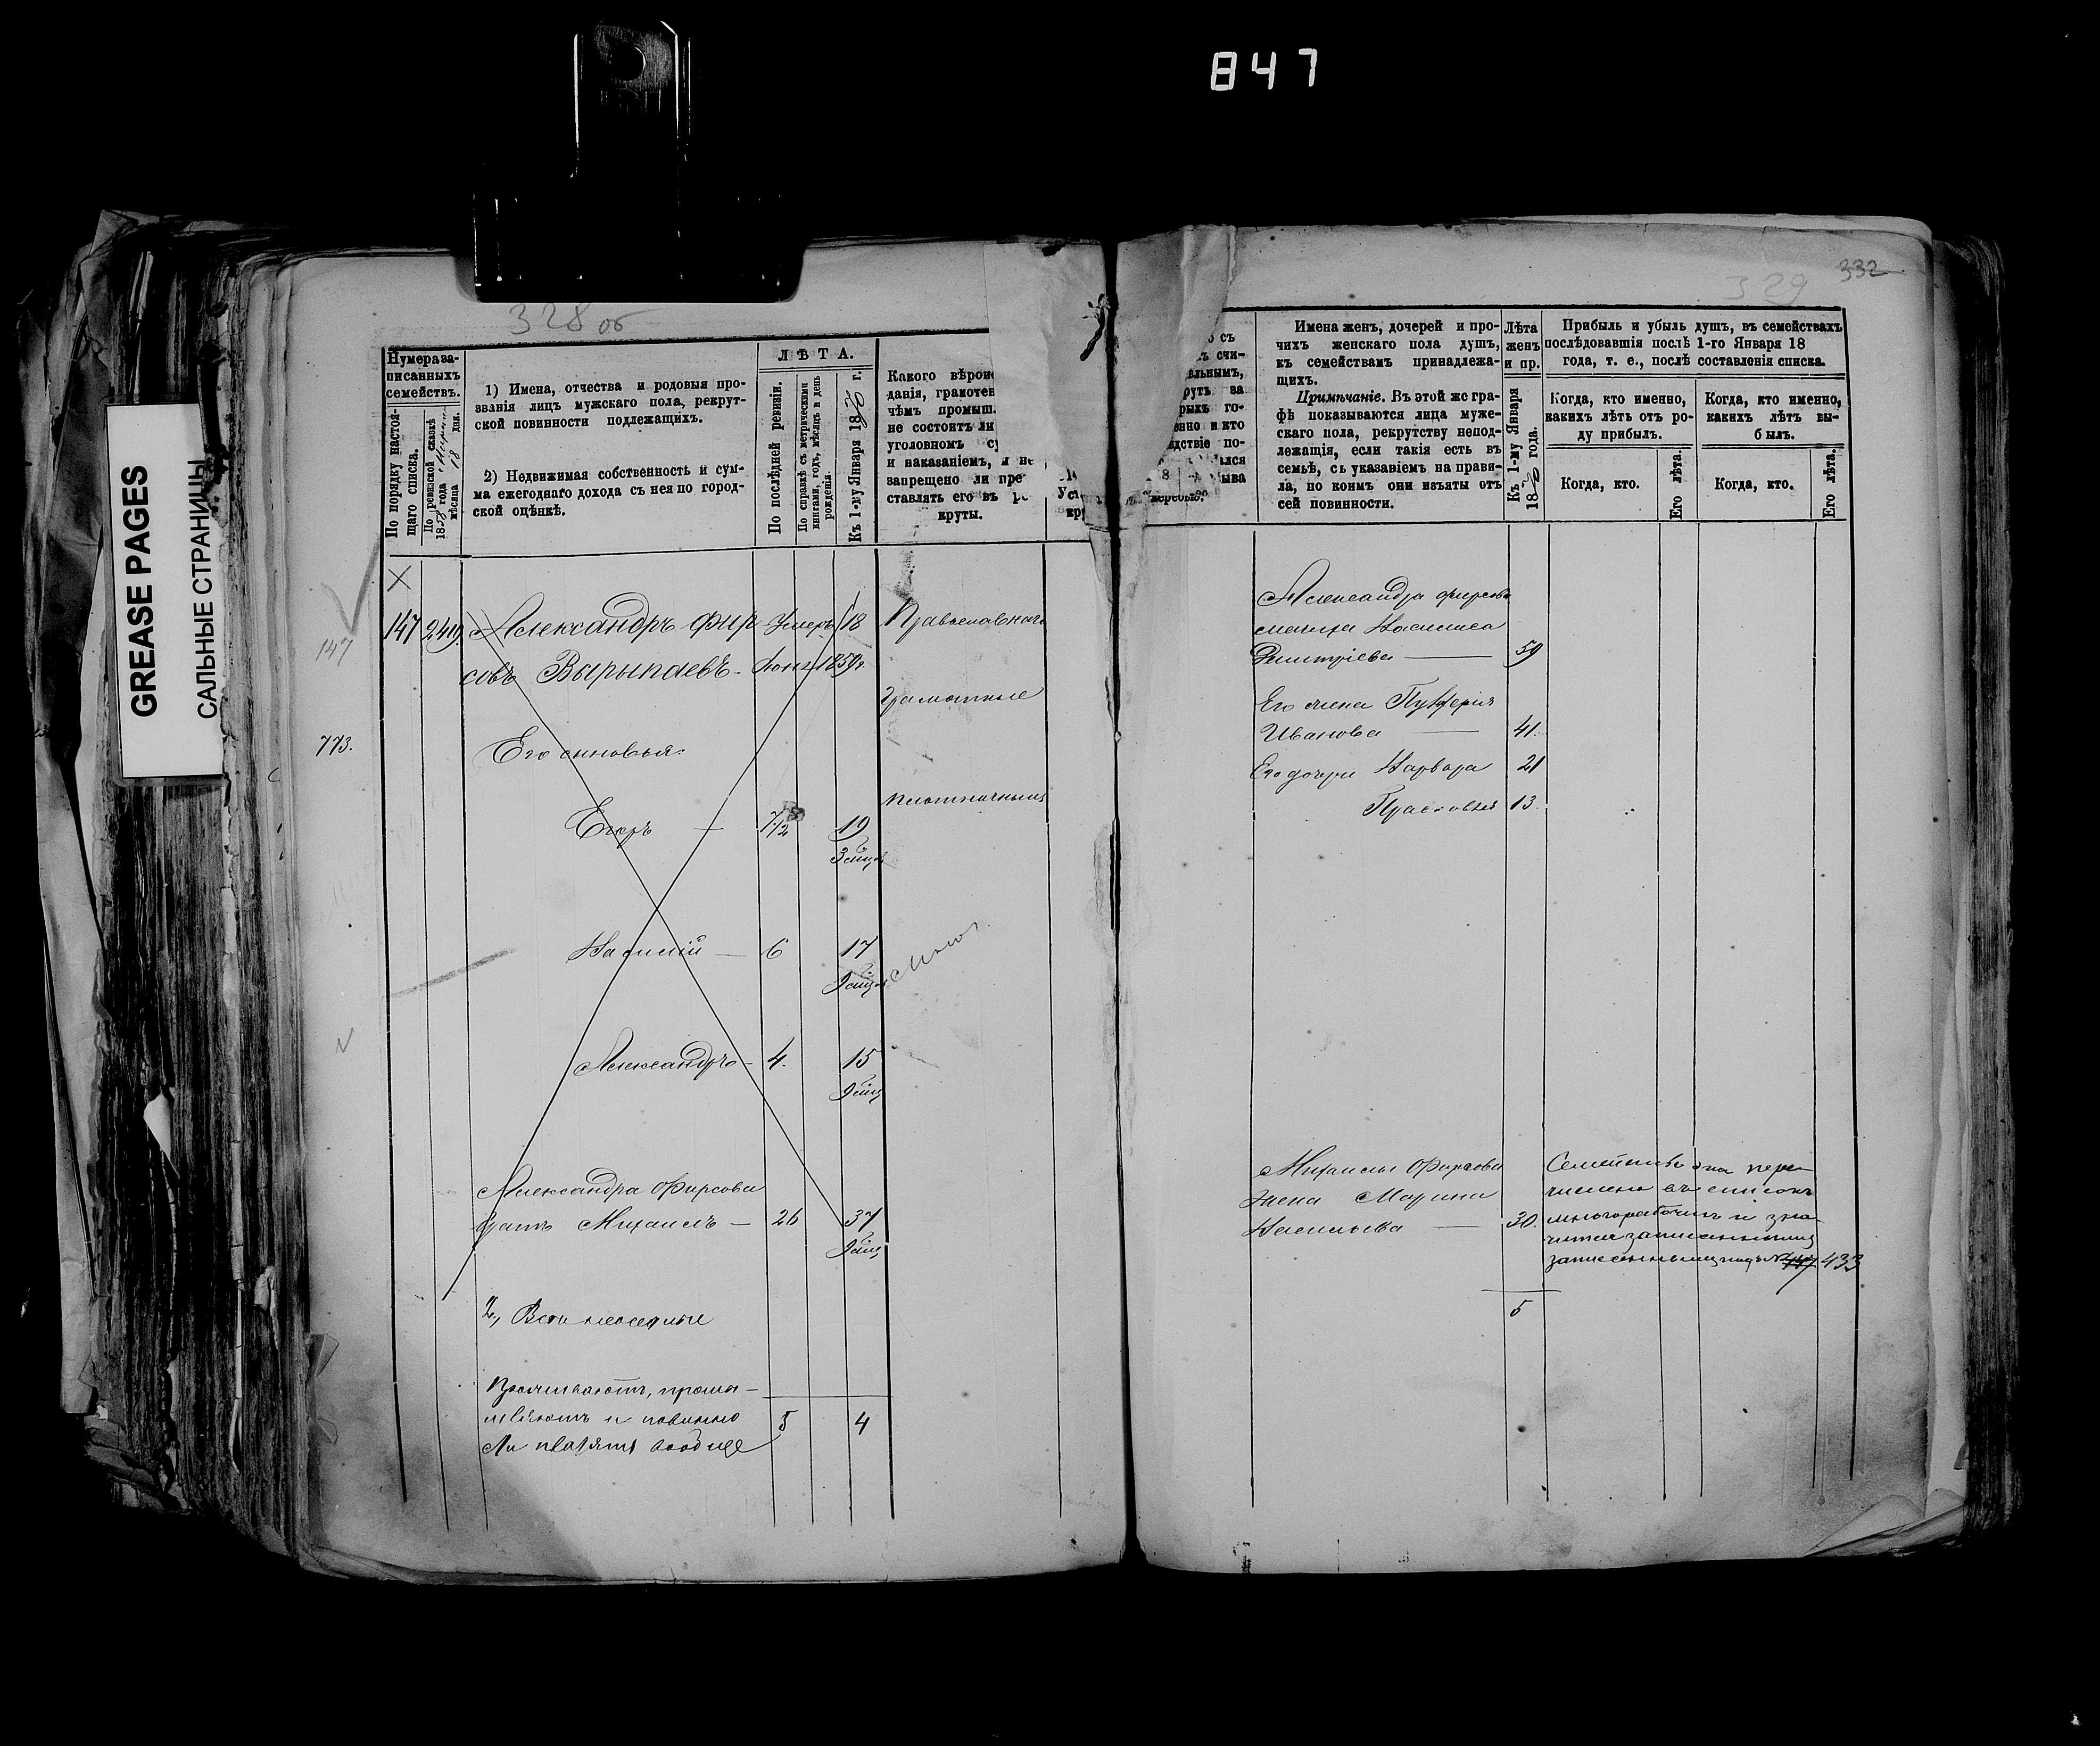 847
GREASE PAGES
САЛЬНЫЕ СТРАНИЦЫ
328 об
Нумера за-
писанныхъ
семействъ.
По порядку настоя-
щаго списка.
По ревизской сказкѣ
1858 года
мѣсяца 18 дня.
1) Имена, отчества и родовыя про-
званія лицъ мужскаго пола, рекрут-
ской повинности подлежащихъ.
2) Недвижимая собственность и сум-
ма ежегоднаго дохода съ нея по город-
ской оцѣнкѣ.
ЛѢТА.
По послѣдней ревизіи.
По справкѣ съ метрическими
книгами, годъ, мѣсяцъ и день
рожденія.
Къ 1-му Января 1870 г.
Какого вѣрои
данія, грамотен
чѣмъ промыш.
не состоитъ ли
уголовномъ су
и наказаніемъ, и не
запрещено ли пре
ставлять его въ ре
круты.
147
773.
147 249. Александръ Фир- Умеръ 18
совъ Вырыпаевъ- 1859г.
Его сыновья:
Егоръ — 7 1/2 19
Василій — 6 17
Александръ- 4. 15
Александра Фирсова
братъ Михаилъ — 26 37
Православнаго
Грамотные
2,
Проживаютъ, промы-
шляютъ и повинно
сти платятъ вообще
5 4
332
329
о съ
ъ счи-
альнымъ,
рутъ за
рыхъ го-
енно и кто
ѣдствіе по-
ался
ыва
жеребью?
Имена женъ, дочерей и про-
чихъ женскаго пола душъ,
къ семействамъ принадлежа-
щихъ.
Примѣчаніе. Въ этой же гра-
фѣ показываются лица муже-
скаго пола, рекрутству непод-
лежащія, если такія есть въ
семьѣ, съ указаніемъ на прави-
ла, по коимъ они изъяты отъ
сей повинности.
Лѣта
женъ
и пр.
Къ 1-му Января
1870 года.
Прибыль и убыль душъ, въ семействахъ
послѣдовавшія послѣ 1-го Января 18
года, т. е., послѣ составленія списка.
Когда, кто именно,
какихъ лѣтъ отъ ро-
ду прибылъ.
Когда, кто именно,
какихъ лѣтъ вы-
былъ.
Когда, кто.
Его лѣта.
Когда, кто.
Его лѣта.
Александра Фирсова
мачиха Василиса
Дмитріева — 59
Его жена
Иванова — 41.
Его дочери Варвара 21
Прасковья 13.
Михаилы Фирсова
жена Марина
Васильева — 30.
5
Семейство это пере-
числено въ списокъ
многорабочихъ и зна-
чится записаннымъ
записаннымъ подъ № 147 433